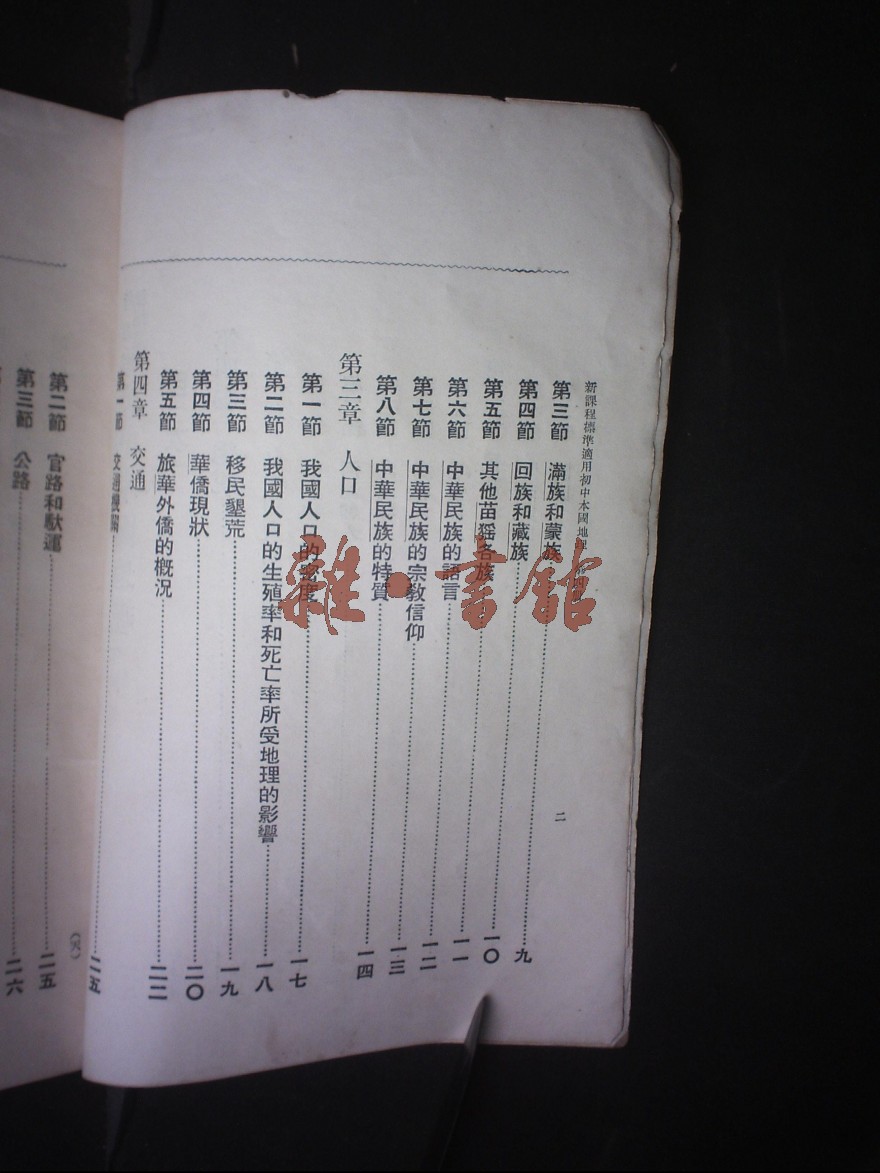 新課程標準適用初中本國地理
二
第三節 滿族和蒙族……九
第四節 回族和藏族……一〇
第五節 其他苗猺各族……一一
第六節 中華民族的語言……一二
第七節 中華民族的宗教信仰……一三
第八節 中華民族的特質……一四
第三章 人口
第一節 我國人口的密度……一七
第二節 我國人口的生殖率和死亡率所受地理的影響……一八
第三節 移民墾荒……一九
第四節 華僑現狀……二〇
第五節 旅華外僑的概況……二二
第四章 交通
第一節 交通機關……二五
第二節 官路和馱運……二五
第三節 公路……二六
雜·書館